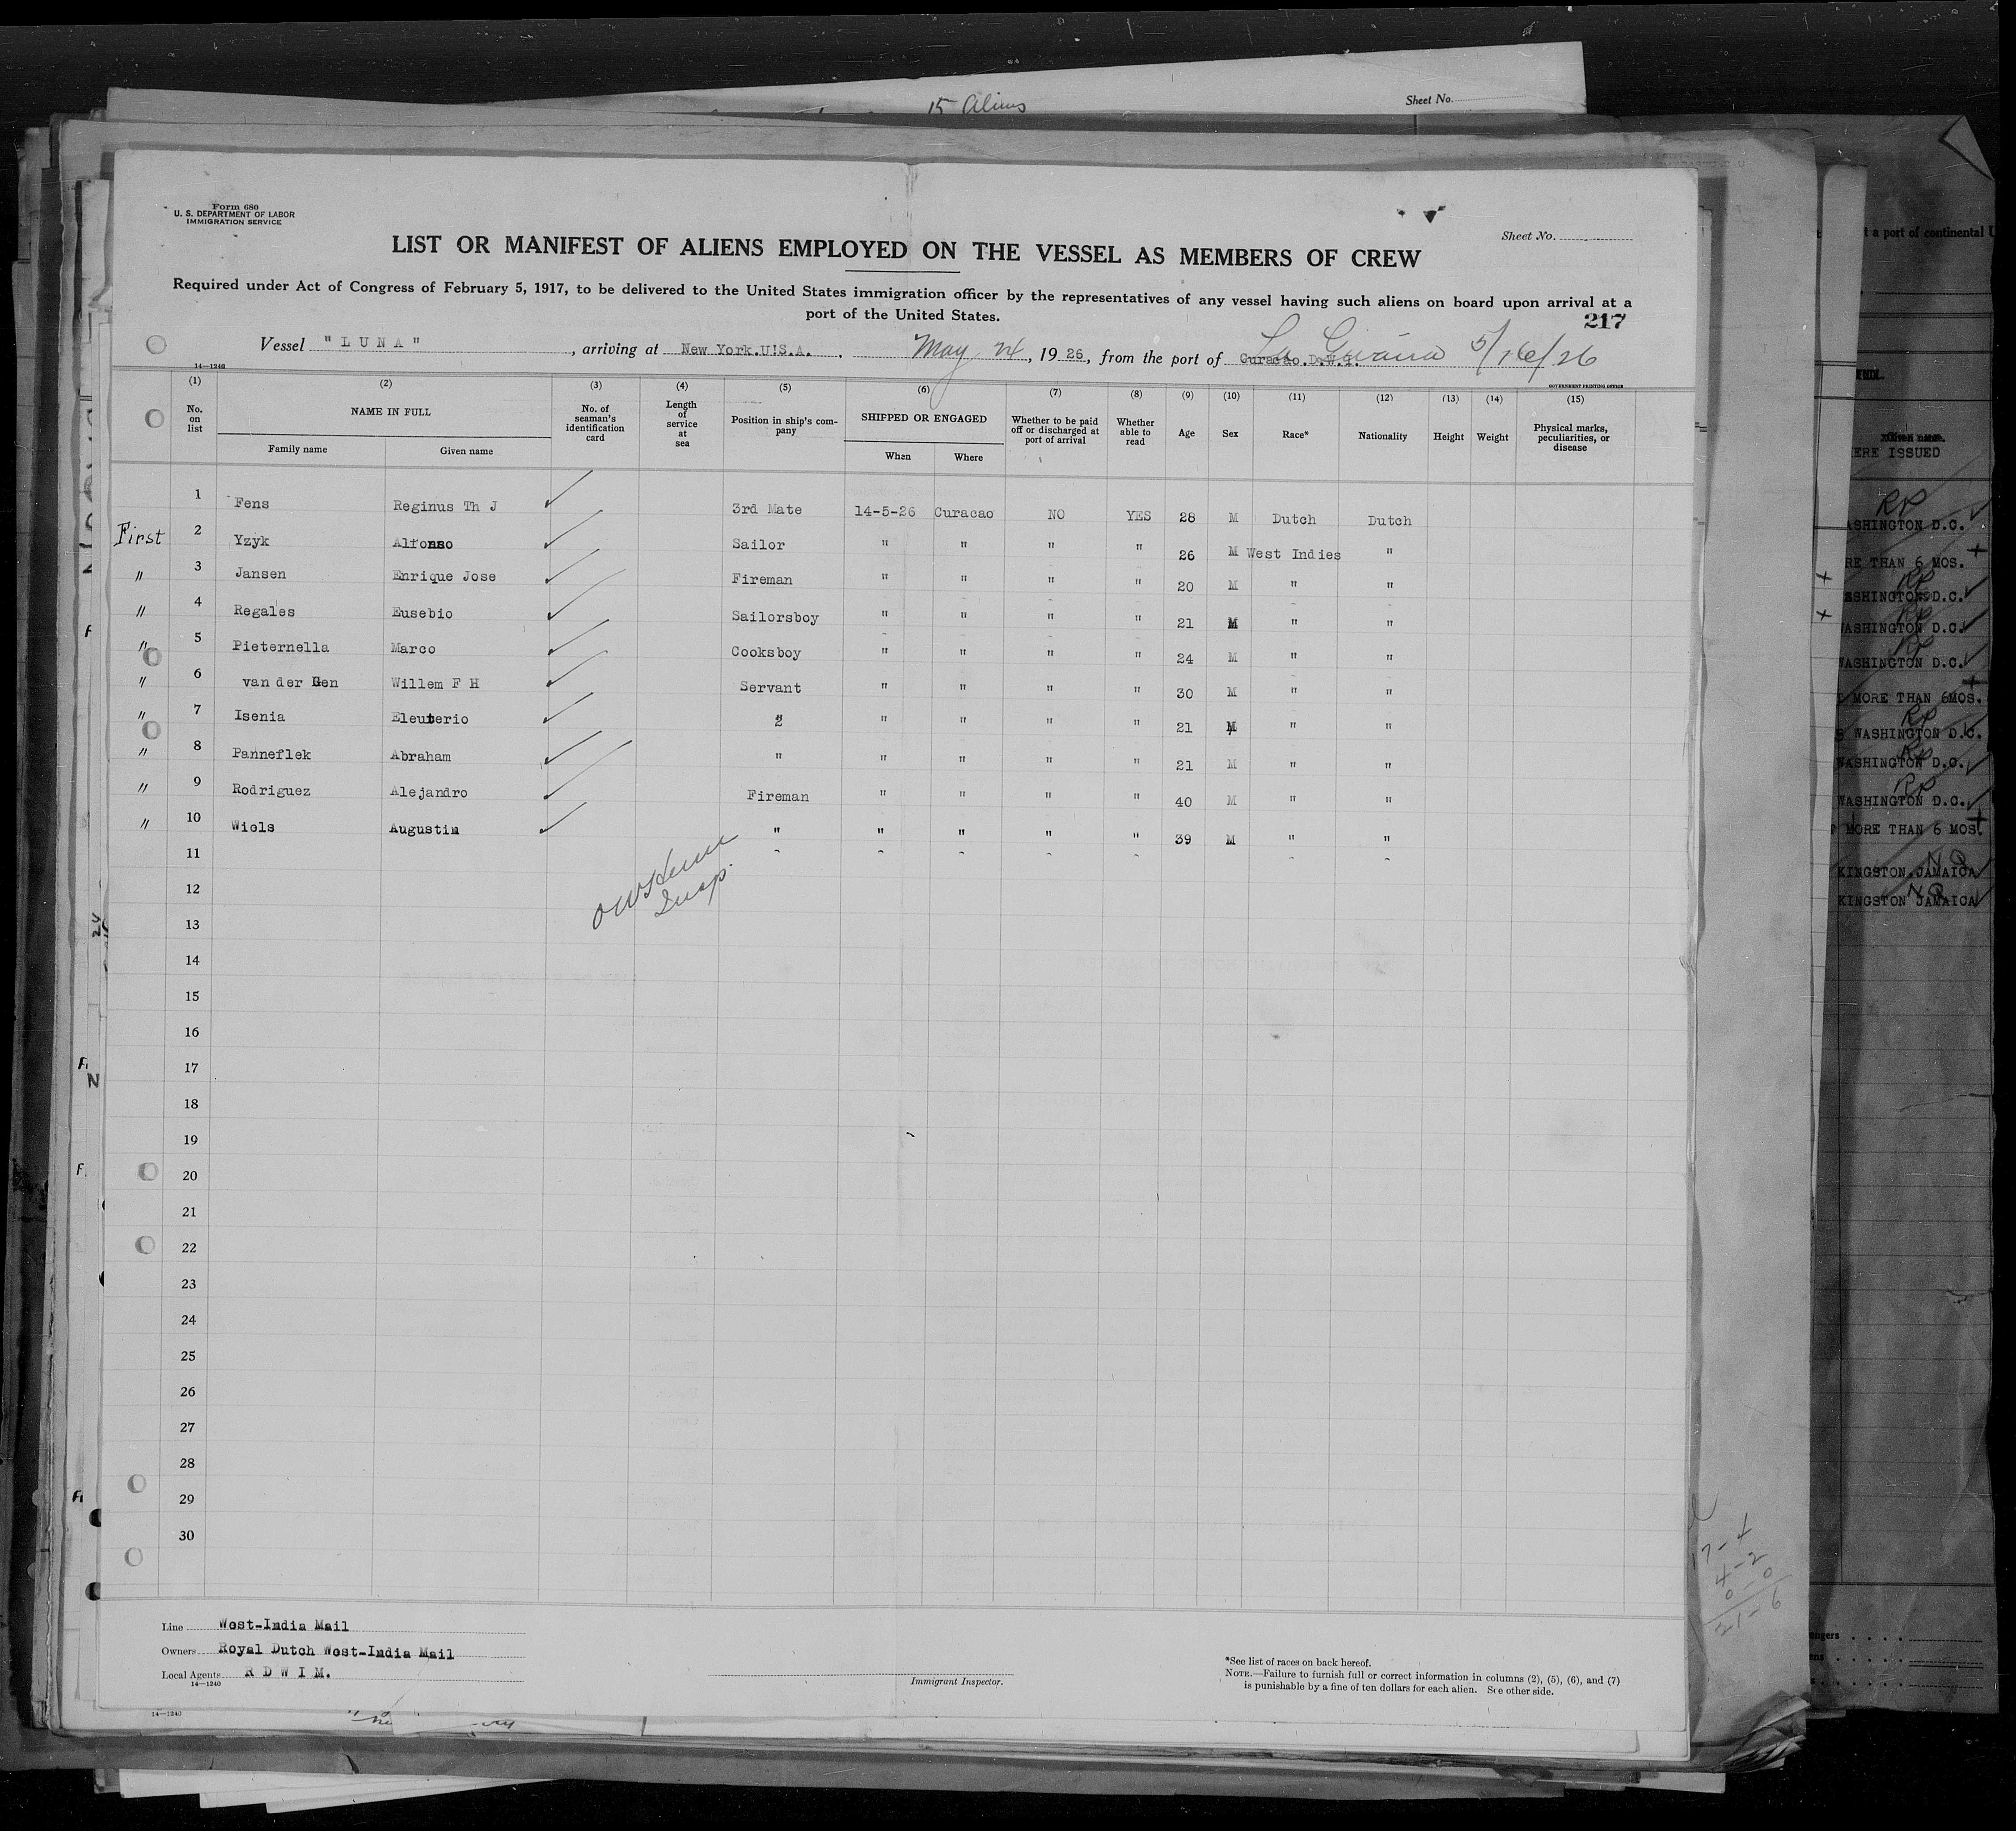 15 Aliens
Sheet No.
Form 680
U. S. DEPARTMENT OF LABOR
IMMIGRATION SERVICE
Sheet No.
LIST OR MANIFEST OF ALIENS EMPLOYED ON THE VESSEL AS MEMBERS OF CREW
Required under Act of Congress of February 5, 1917, to be delivered to the United States immigration officer by the representatives of any vessel having such aliens on board upon arrival at a
port of the United States.
217
Vessel "LUNA", arriving at New York.U.S.A., May 24, 1926, from the port of Curacao.D.W.I. La Guaira 5/16/26
14—1240
GOVERNMENT PRINTING OFFICE
(1) (2) (3) (4) (5) (6) (7) (8) (9) (10) (11) (12) (13) (14) (15)
No. on list NAME IN FULL No. of seaman's identification card Length of service at sea Position in ship's company SHIPPED OR ENGAGED Whether to be paid off or discharged at port of arrival Whether able to read Age Sex Race* Nationality Height Weight Physical marks, peculiarities, or disease
Family name Given name When Where
1 Fens Reginus Th J 3rd Mate 14-5-26 Curacao NO YES 28 M Dutch Dutch
First 2 Yzyk Alfonso Sailor " " " " 26 M West Indies "
" 3 Jansen Enrique Jose Fireman " " " " 20 M " "
" 4 Regales Eusebio Sailorsboy " " " " 21 M " "
" 5 Pieternella Marco Cooksboy " " " " 24 M " "
" 6 van der Gen Willem F H Servant " " " " 30 M " "
" 7 Isenia Eleuterio " " " " " 21 M " "
" 8 Panneflek Abraham " " " " " 21 M " "
" 9 Rodriguez Alejandro Fireman " " " " 40 M " "
" 10 Wiels Augustin " " " " " 39 M " "
11
12
Insp.
13
14
15
16
17
18
19
20
21
22
23
24
25
26
27
28
29
30
Line West-India Mail
Owners Royal Dutch West-India Mail
Local Agents R D W I M.
14—1240
Immigrant Inspector.
*See list of races on back hereof.
NOTE.—Failure to furnish full or correct information in columns (2), (5), (6), and (7)
is punishable by a fine of ten dollars for each alien. See other side.
14—1240
t a port of continental U
Given name.
ERE ISSUED
ASHINGTON D.C.
RE THAN 6 MOS.
ASHINGTON D.C.
WASHINGTON D.C.
WASHINGTON D.C.
MORE THAN 6MOS.
WASHINGTON D.C.
WASHINGTON D.C.
WASHINGTON D.C.
MORE THAN 6 MOS.
KINGSTON JAMAICA
KINGSTON JAMAICA
17-4
4-2
0-0
21-6